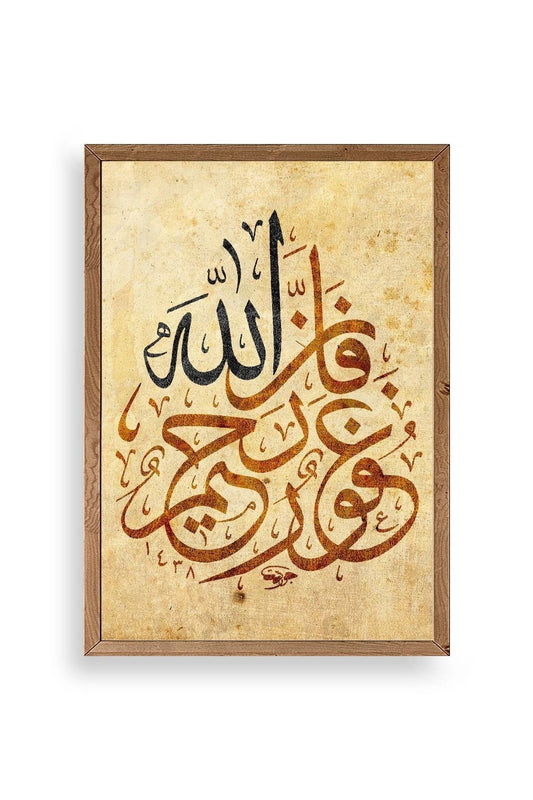 فَإِنَّ اللّٰهَ
غَفُورٌ رَحِيمٌ
١٤٣٨